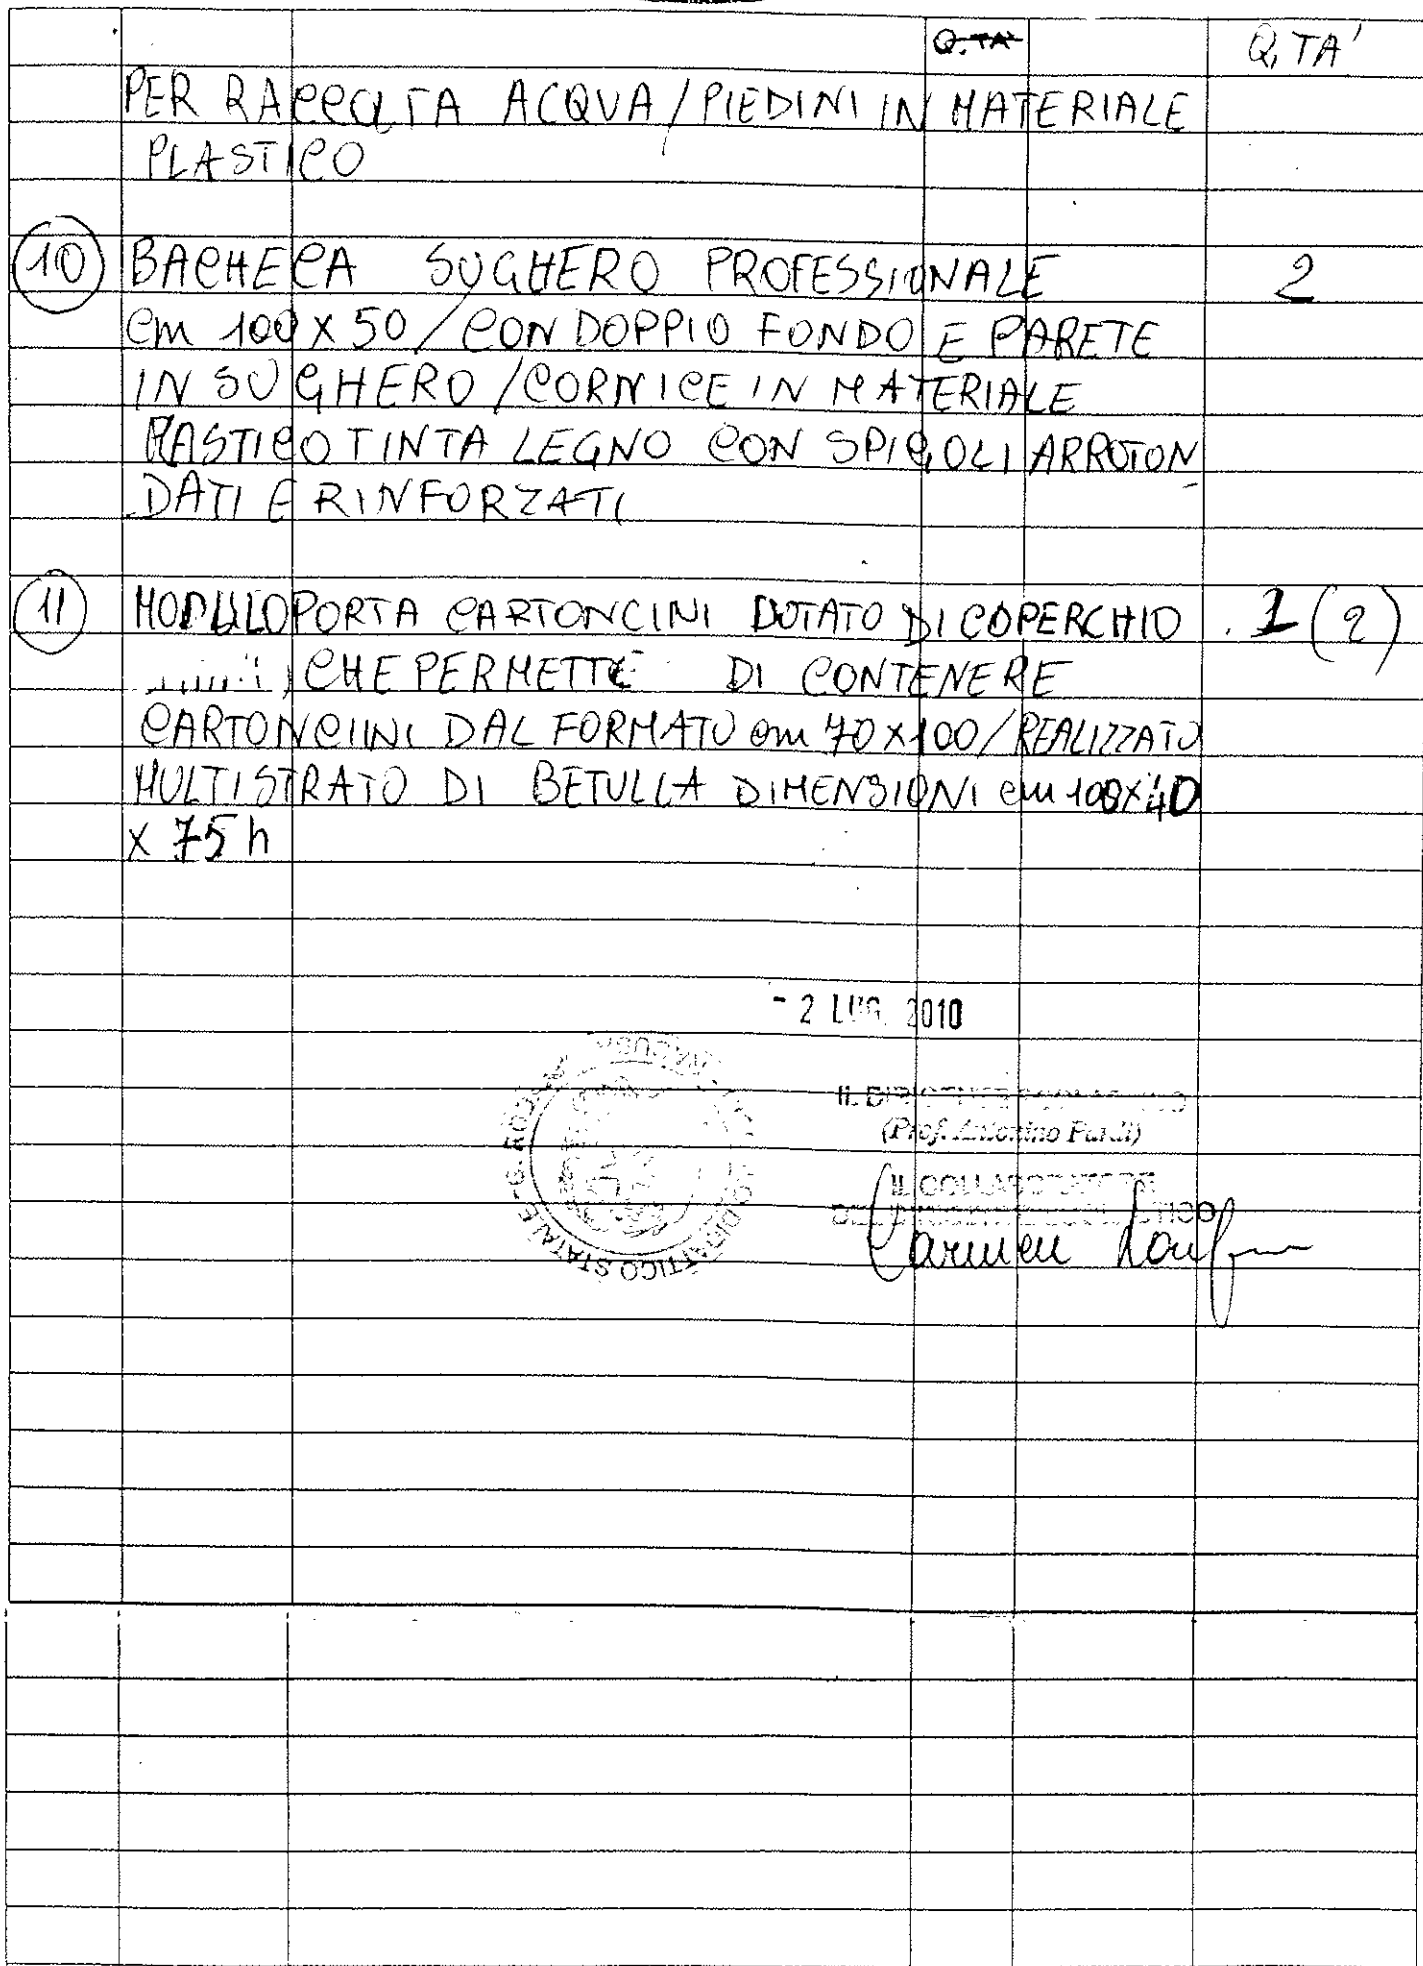 Q.TA' Q.TA'
PER RACCOLTA ACQUA / PIEDINI IN MATERIALE
PLASTICO
10 BACHECA SUGHERO PROFESSIONALE 2
cm 100 X 50 / CON DOPPIO FONDO E PARETE
IN SUGHERO / CORNICE IN MATERIALE
PLASTICO TINTA LEGNO CON SPIGOLI ARROTON
DATI E RINFORZATI
11 MODULO PORTA CARTONCINI DOTATO DI COPERCHIO 1 (2)
CHE PERMETTE DI CONTENERE
CARTONCIINI DAL FORMATO cm 70 X 100 / REALIZZATO
MULTISTRATO DI BETULLA DIMENSIONI cm 100 X 40
X 75 h
- 2 LUG. 2010
(Prof. Antonino
IL COLLABORATORE
DIDATTICO STATALE - G.
Carmen